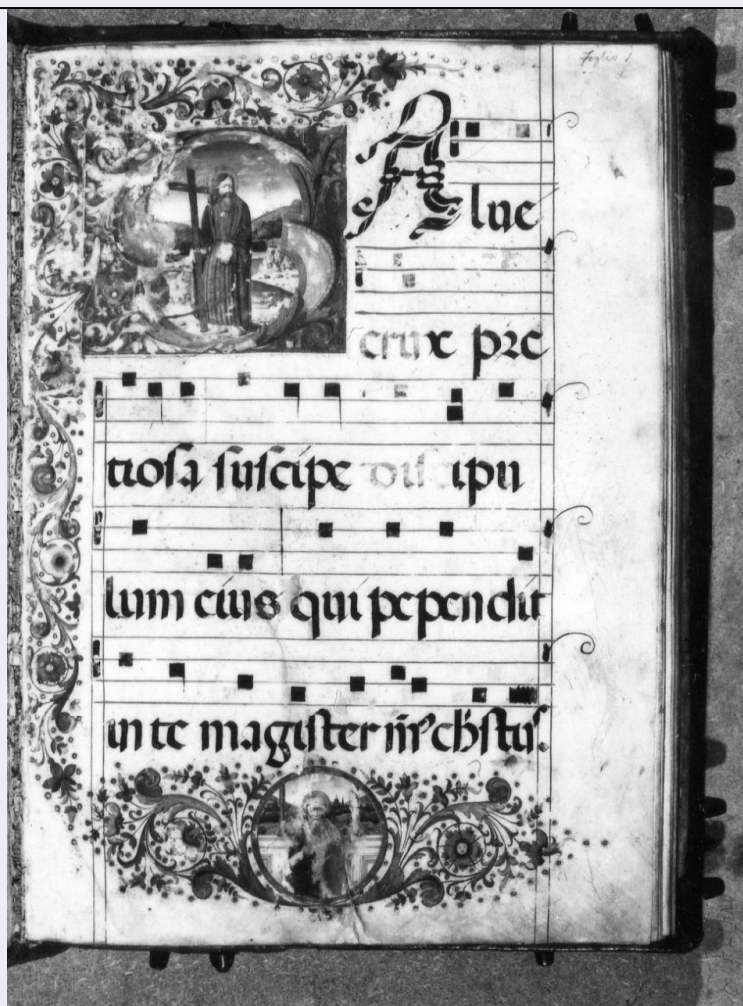 Foglio 1
SAlue
crux pre
tiosa suscipe discipu
lum eius qui pependit
in te magister ch̄stus.